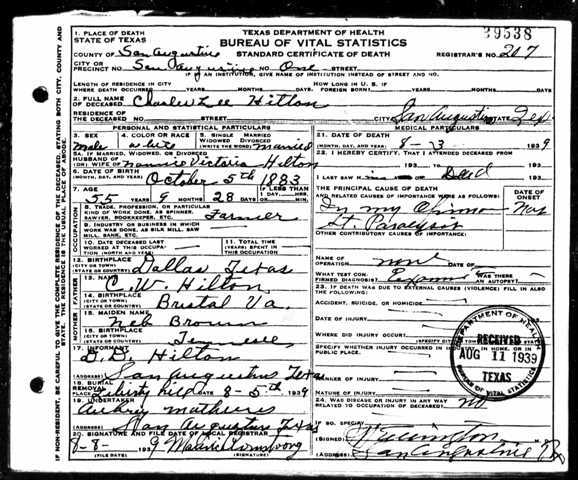 39538
1. PLACE OF DEATH
STATE OF TEXAS
TEXAS DEPARTMENT OF HEALTH
BUREAU OF VITAL STATISTICS
STANDARD CERTIFICATE OF DEATH
COUNTY OF San Augustine
REGISTRAR'S NO. 207
CITY OR PRECINCT NO. San Augustine One STREET
IF AN INSTITUTION, GIVE NAME OF INSTITUTION INSTEAD OF STREET AND NO.
LENGTH OF RESIDENCE IN CITY WHERE DEATH OCCURRED YEARS MONTHS DAYS
HOW LONG IN U. S. IF FOREIGN BORN? YEARS MONTHS DAYS
2. FULL NAME OF DECEASED Charles Lee Hilton
RESIDENCE OF THE DECEASED NO. STREET CITY San Augustine STATE Tex
PERSONAL AND STATISTICAL PARTICULARS
3. SEX Male
4. COLOR OR RACE white
5. SINGLE MARRIED WIDOWED DIVORCED (WRITE) married
5A. IF MARRIED, WIDOWED OR DIVORCED
HUSBAND OF (OR) WIFE OF nannie Victoria Hilton
6. DATE OF BIRTH (MONTH, DAY, AND YEAR) October 5th 1883
7. AGE YEARS MONTHS DAYS IF LESS THAN 1 DAY
55 9 28
8. TRADE, PROFESSION, OR PARTICULAR KIND OF WORK DONE, AS SPINNER, SAWYER, BOOKKEEPER, ETC. Farmer
9. INDUSTRY OR BUSINESS IN WHICH WORK WAS DONE, AS SILK MILL, SAW MILL, BANK, ETC
10. DATE DECEASED LAST WORKED AT THIS OCCUPATION (MONTH AND YEAR)
11. TOTAL YEARS SPENT IN THIS OCCUPATION
12. BIRTHPLACE (CITY OR TOWN) (STATE OR COUNTRY) Dallas Texas
13. NAME C. W. Hilton
14. BIRTHPLACE (CITY OR TOWN) (STATE OR COUNTRY) Bristal Va
15. MAIDEN NAME Neb Brown
16. BIRTHPLACE (CITY OR TOWN) (STATE OR COUNTRY)
17. INFORMANT D. D. Hilton
(ADDRESS) San Augustine Texas
18. BURIAL REMOVAL PLACE Liberty hill 8-5th 1939
19. UNDERTAKER Aubrey mathews
(ADDRESS) San Augustine Texas
20. SIGNATURE AND FILE DATE OF LOCAL REGISTRAR
8-8- 1939
(FILE DATE) (SIGNATURE)
MEDICAL PARTICULARS
21. DATE OF DEATH
(MONTH, DAY, AND YEAR) 8-3 1939
22. I HEREBY CERTIFY, THAT I ATTENDED DECEASED FROM
193 TO 193
I LAST SAW H ALIVE ON Dead 193
THE PRINCIPAL CAUSE OF DEATH
AND RELATED CAUSES OF IMPORTANCE WERE AS FOLLOWS:
DATE OF ONSET
In my Opinion
Paralysis
OTHER CONTRIBUTORY CAUSES OF IMPORTANCE
NAME OF OPERATION none
WHAT TEST CONFIRMED DIAGNOSIS?
23. IF DEATH WAS DUE TO EXTERNAL CAUSES (VIOLENCE) FILL IN ALSO THE FOLLOWING:
ACCIDENT, SUICIDE, OR HOMICIDE?
DATE OF INJURY
WHERE DID INJURY OCCUR?
SPECIFY WHETHER INJURY OCCURRED IN INDUSTRY, IN HOME, OR IN PUBLIC PLACE.
MANNER OF INJURY
NATURE OF INJURY
24. WAS DISEASE OR INJURY IN ANY WAY RELATED TO OCCUPATION OF DECEASED? no
IF SO, SPECIFY
(SIGNED)
(ADDRESS) San Augustine
DEPARTMENT OF HEALTH
RECEIVED
AUG 11 1939
TEXAS
BUREAU OF VITAL STATISTICS
OCCUPATION
FATHER
MOTHER